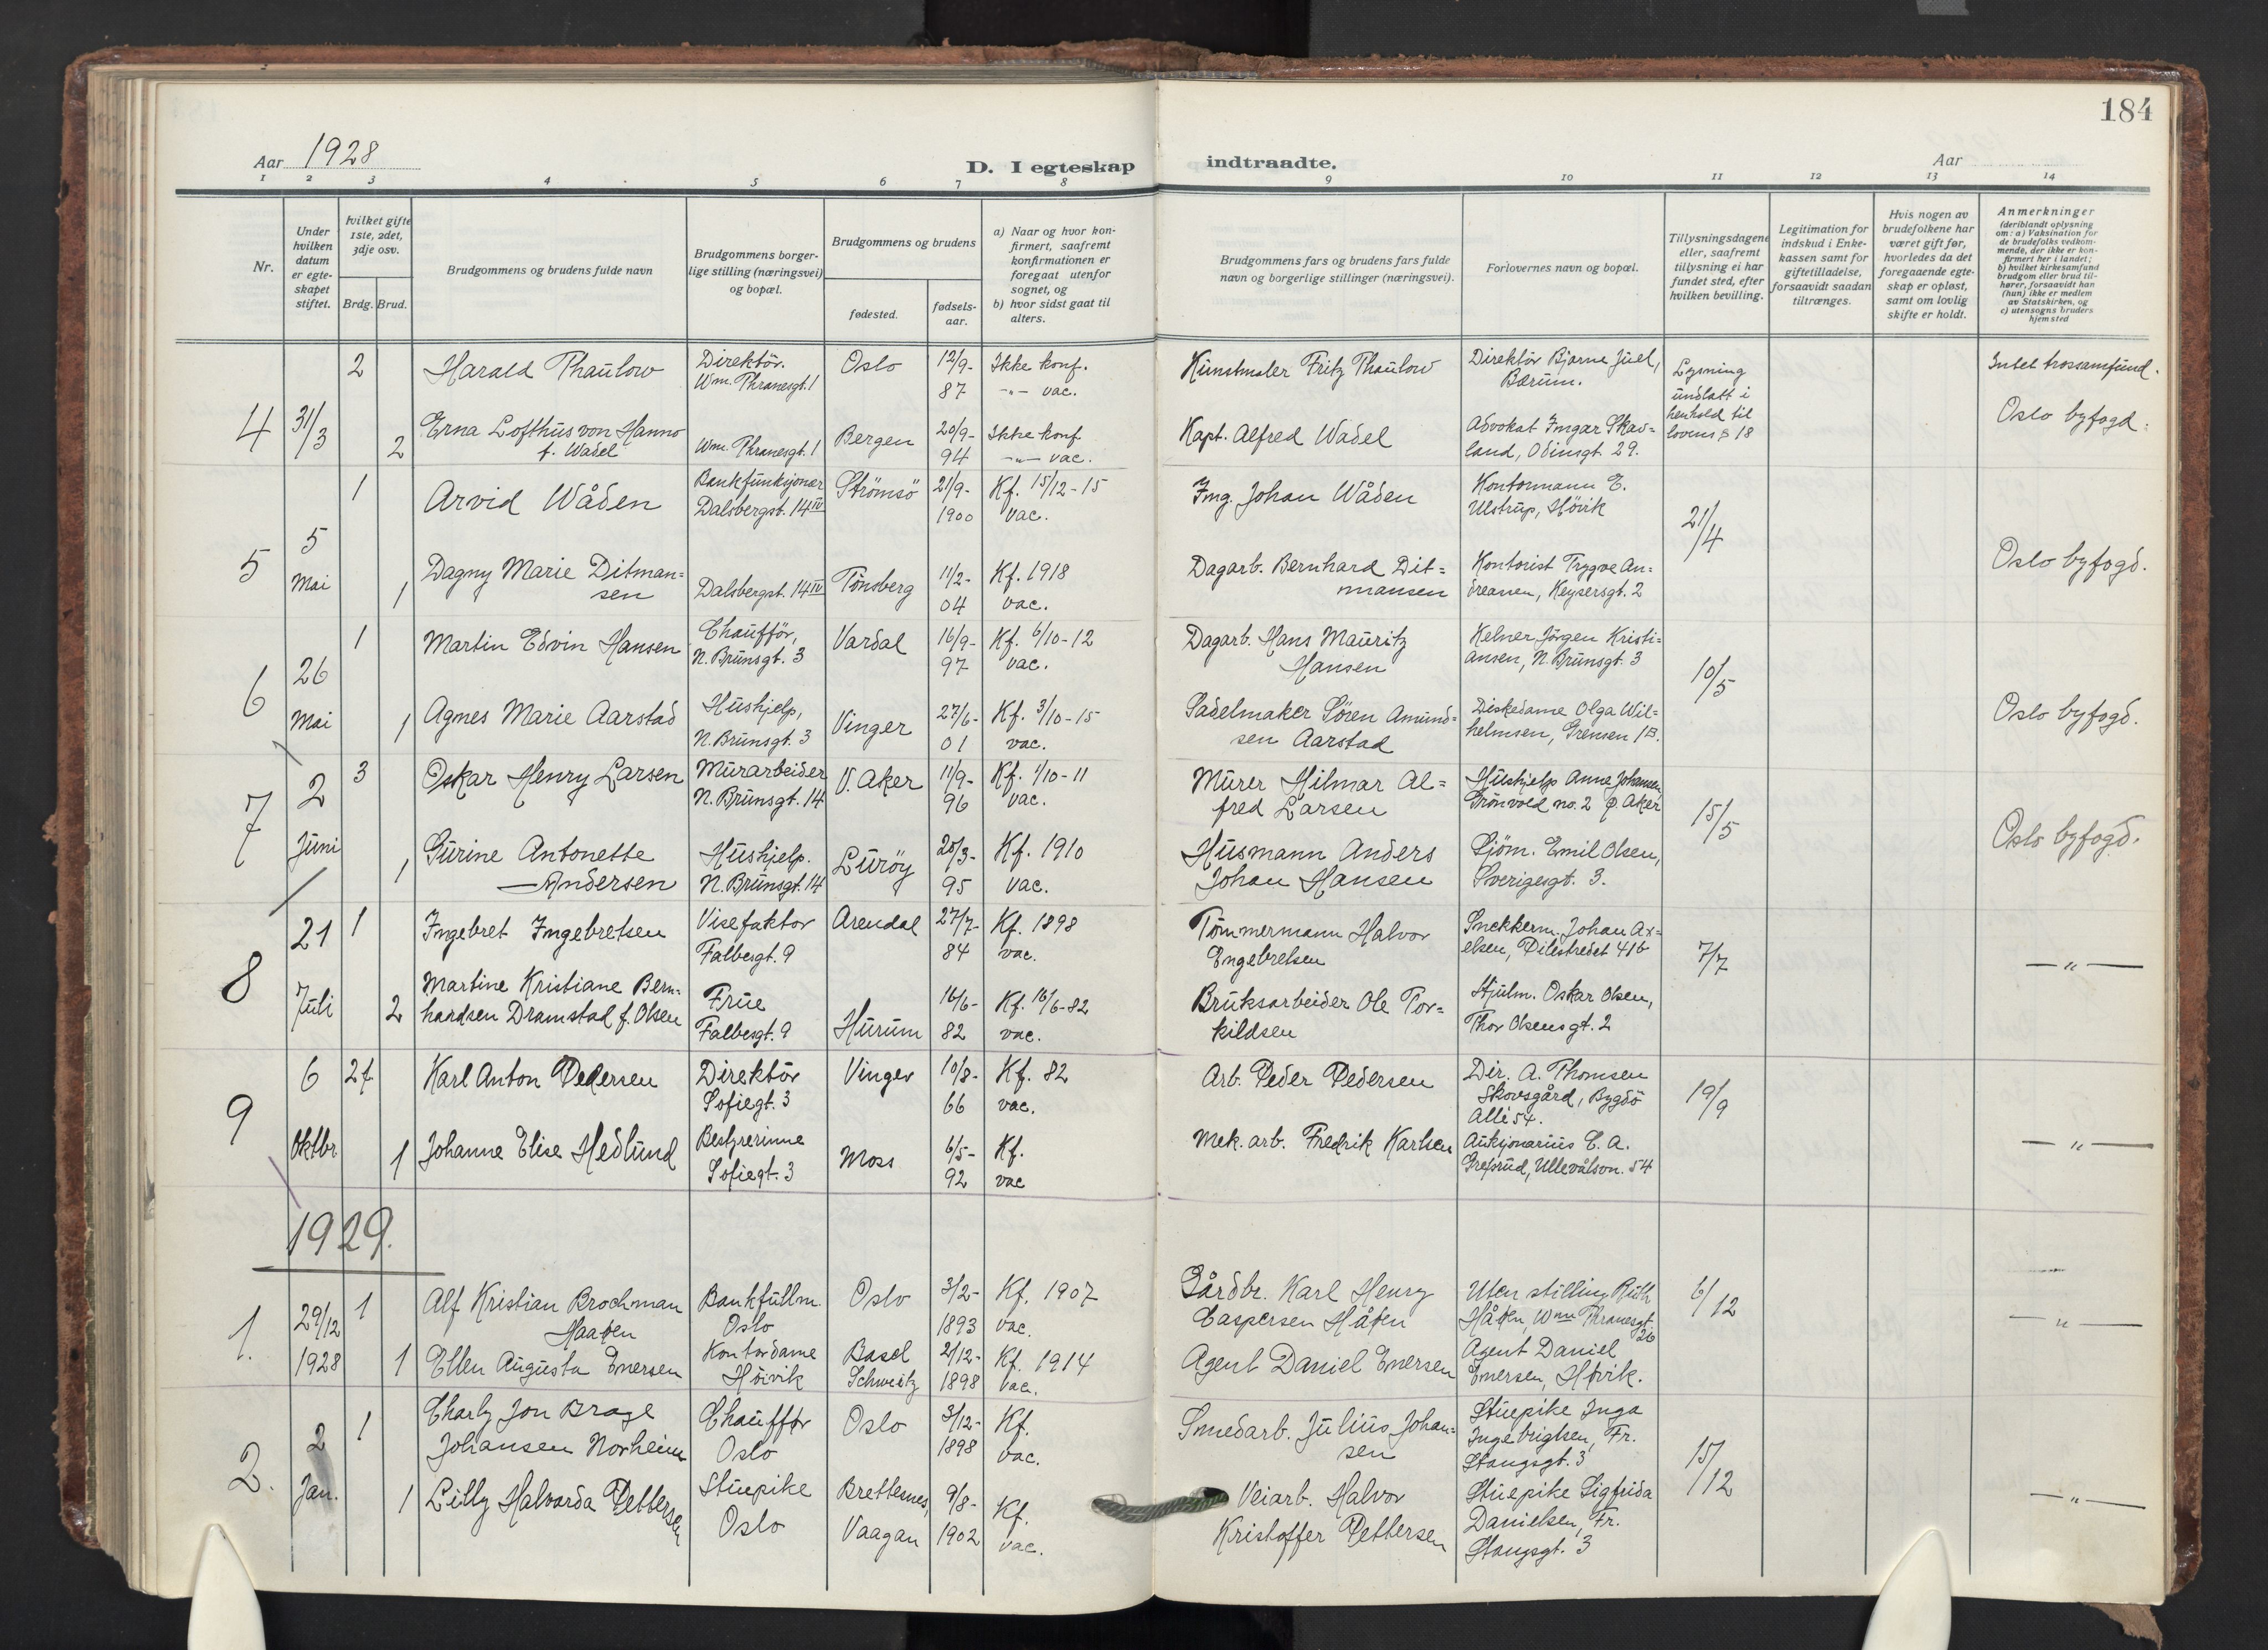 184
Aar 1928
D. I egteskap indtraadte.
Aar
1 2 3 4 5 6 7 8 9 10 11 12 13 14
Nr.
Under hvilken datum er egteskapet stiftet.
hvilket gifte 1ste, 2det, 3dje osv.
Brdg. Brud.
Brudgommens og brudens fulde navn
Brudgommens borgerlige stilling (næringsvei) og bopæl.
Brudgommens og brudens
fødested.
fødselsaar.
a) Naar og hvor konfirmert, saafremt konfirmationen er foregaat utenfor sognet, og
b) hvor sidst gaat til alters.
Brudgommens fars og brudens fars fulde navn og borgerlige stillinger (næringsvei).
Forlovernes navn og bopæl.
Tillysningsdagene eller, saafremt tillysning ei har fundet sted, efter hvilken bevilling.
Legitimation for indskud i Enkekassen samt for giftetilladelse, forsaavidt saadan tiltrænges.
Hvis nogen av brudefolkene har været gift før, hvorledes da det foregaaende egteskap er opløst, samt om lovlig skifte er holdt.
Anmerkninger (deriblandt oplysning om: a) Vaksination for de brudefolks vedkommende, der ikke er konfirmert her i landet; b) hvilket kirkesamfund brudgom eller brud tilhører, forsaavidt han (hun) ikke er medlem av Statskirken, og c) utensogns bruders hjemsted
4 31/3
2 Harald Thaulow Direktör. Wm. Thranesgt. 1 Oslo 12/9-87 Ikke konf. -"- vac. Kunstmaler Fritz Thaulow Direktör Bjarne Juel, Bærum. Lysning undlatt i henhold til lovens § 18 Intet trossamfund.
2 Erna Lofthus von Hanno f. Wadel Wm. Thranesgt. 1 Bergen 20/9-94 Ikke konf -"- vac. Kapt. Alfred Wadel Advokat Ingar Skavland, Odinsgt. 29. Oslo byfogd.
5 5 Mai
1 Arvid Wåden Bankfunksjonær Dalsbergst. 14 IV Strömsö 21/9-1900 Kf. 15/12-15 vac. Ing. Johan Wåden Kontormann E. Ulstrup, Hövik 21/4
1 Dagny Marie Ditmansen Dalsbergst. 14 IV Tönsberg 11/2-04 Kf. 1918 vac. Dagarb. Bernhard Ditmansen Kontorist Trygve Andreassen, Keysersgt. 2 Oslo byfogd.
6 26 Mai
1 Martin Edvin Hansen Chaufför, N. Brunsgt. 3 Vardal 16/9-97 Kf. 6/10-12 vac. Dagarb. Hans Mauritz Hansen Kelner Jörgen Kristiansen, N. Brunsgt. 3 10/5
1 Agnes Marie Aarstad Hushjelp, N. Brunsgt. 3 Vinger 27/6-01 Kf. 3/10-15 vac. Sadelmaker Sören Amundsen Aarstad Diskedame Olga Wilhelmsen, Grensen 1B. Oslo byfogd.
7 2 Juni
3 Oskar Henry Larsen Murarbeider N. Brunsgt. 14 V. Aker 11/9-96 Kf. 1/10-11 vac. Murer Hilmar Alfred Larsen Hushjelp Anne Johansen, Grönvold no. 2 Ø. Aker 15/5
1 Gurine Antonette Andersen Hushjelp. N. Brunsgt. 14 Luröy 25/3-95 Kf. 1910 vac. Husmann Anders Johan Hansen Sjöm. Emil Olsen, Sverigesgt. 3. Oslo byfogd.
8 21 Juli
1 Ingebret Ingebretsen Visefaktor Falbesgt. 9 Arendal 27/7-84 Kf. 1898 vac. Tömmermann Halvor Engebretsen Snekkerm. Johan Axelsen, Pilestredet 41b 7/7 -"-
2 Martine Kristiane Bernhardsen Dramstad f. Olsen Frue Falbesgt. 9 Hurum 16/6-82 Kf. 16/6-82 vac. Bruksarbeider Ole Torkildsen Hjulm. Oskar Olsen, Thor Olsens gt. 2
9 6 Oktbr
2 f. Karl Anton Pedersen Direktör Sofiegt. 3 Vinger 10/8-66 Kf. 82 vac. Arb. Peder Pedersen Dir. A. Thomsen Skovsgård, Bygdö Allé 54. 19/9
1 Johanne Elise Hedlund Bestyrerinne Sofiegt. 3 Moss 6/5-92 Kf. vac Mek. arb. Fredrik Karlsen Auksjonarius E. A. Grefsrud, Ullevålsvn. 54 -"-
1929.
1. 29/12 1928
1 Alf Kristian Brochman Haaken Bankfullm. Oslo Oslo 3/2-1893 Kf. 1907 vac. Gårdbr. Karl Henry Caspersen Håken Uten stilling Ruth Håken, Wm Thranesgt. 26 6/12 -"-
1 Ellen Augusta Emersen Kontordame Høivik Basel Schweitz 2/12-1898 Kf. 1914 vac. Agent Daniel Emersen Agent Daniel Emersen, Høvik.
2. 2 Jan.
1 Charly Jon Brage Johansen Norheim Chauffør Oslo Oslo 3/12-1898 Kf. vac. Smedarb. Julius Johansen Stuepike Inga Ingebrigtsen, Fr. Stangsgt. 3 15/12
1 Lilly Halvarda Pettersen Stuepike Oslo Brettesnes, Vaagan 9/8-1902 Kf. vac. Veiarb. Halvor Kristoffer Pettersen Stuepike Sigfrida Danielsen, Fr. Stangsgt. 3 -"-